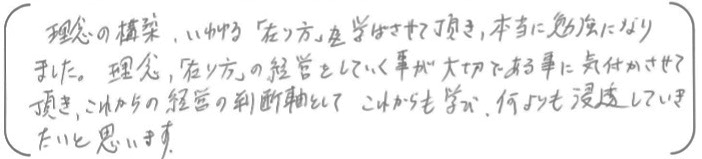 理念の構築、いわゆる「在り方」を学ばさせて頂き、本当に勉強になり
ました。理念、「在り方」の経営をしていく事が大切である事に気付かさせて
頂き、これからの経営の判断軸として これからも学び、何よりも浸透していき
たいと思います。